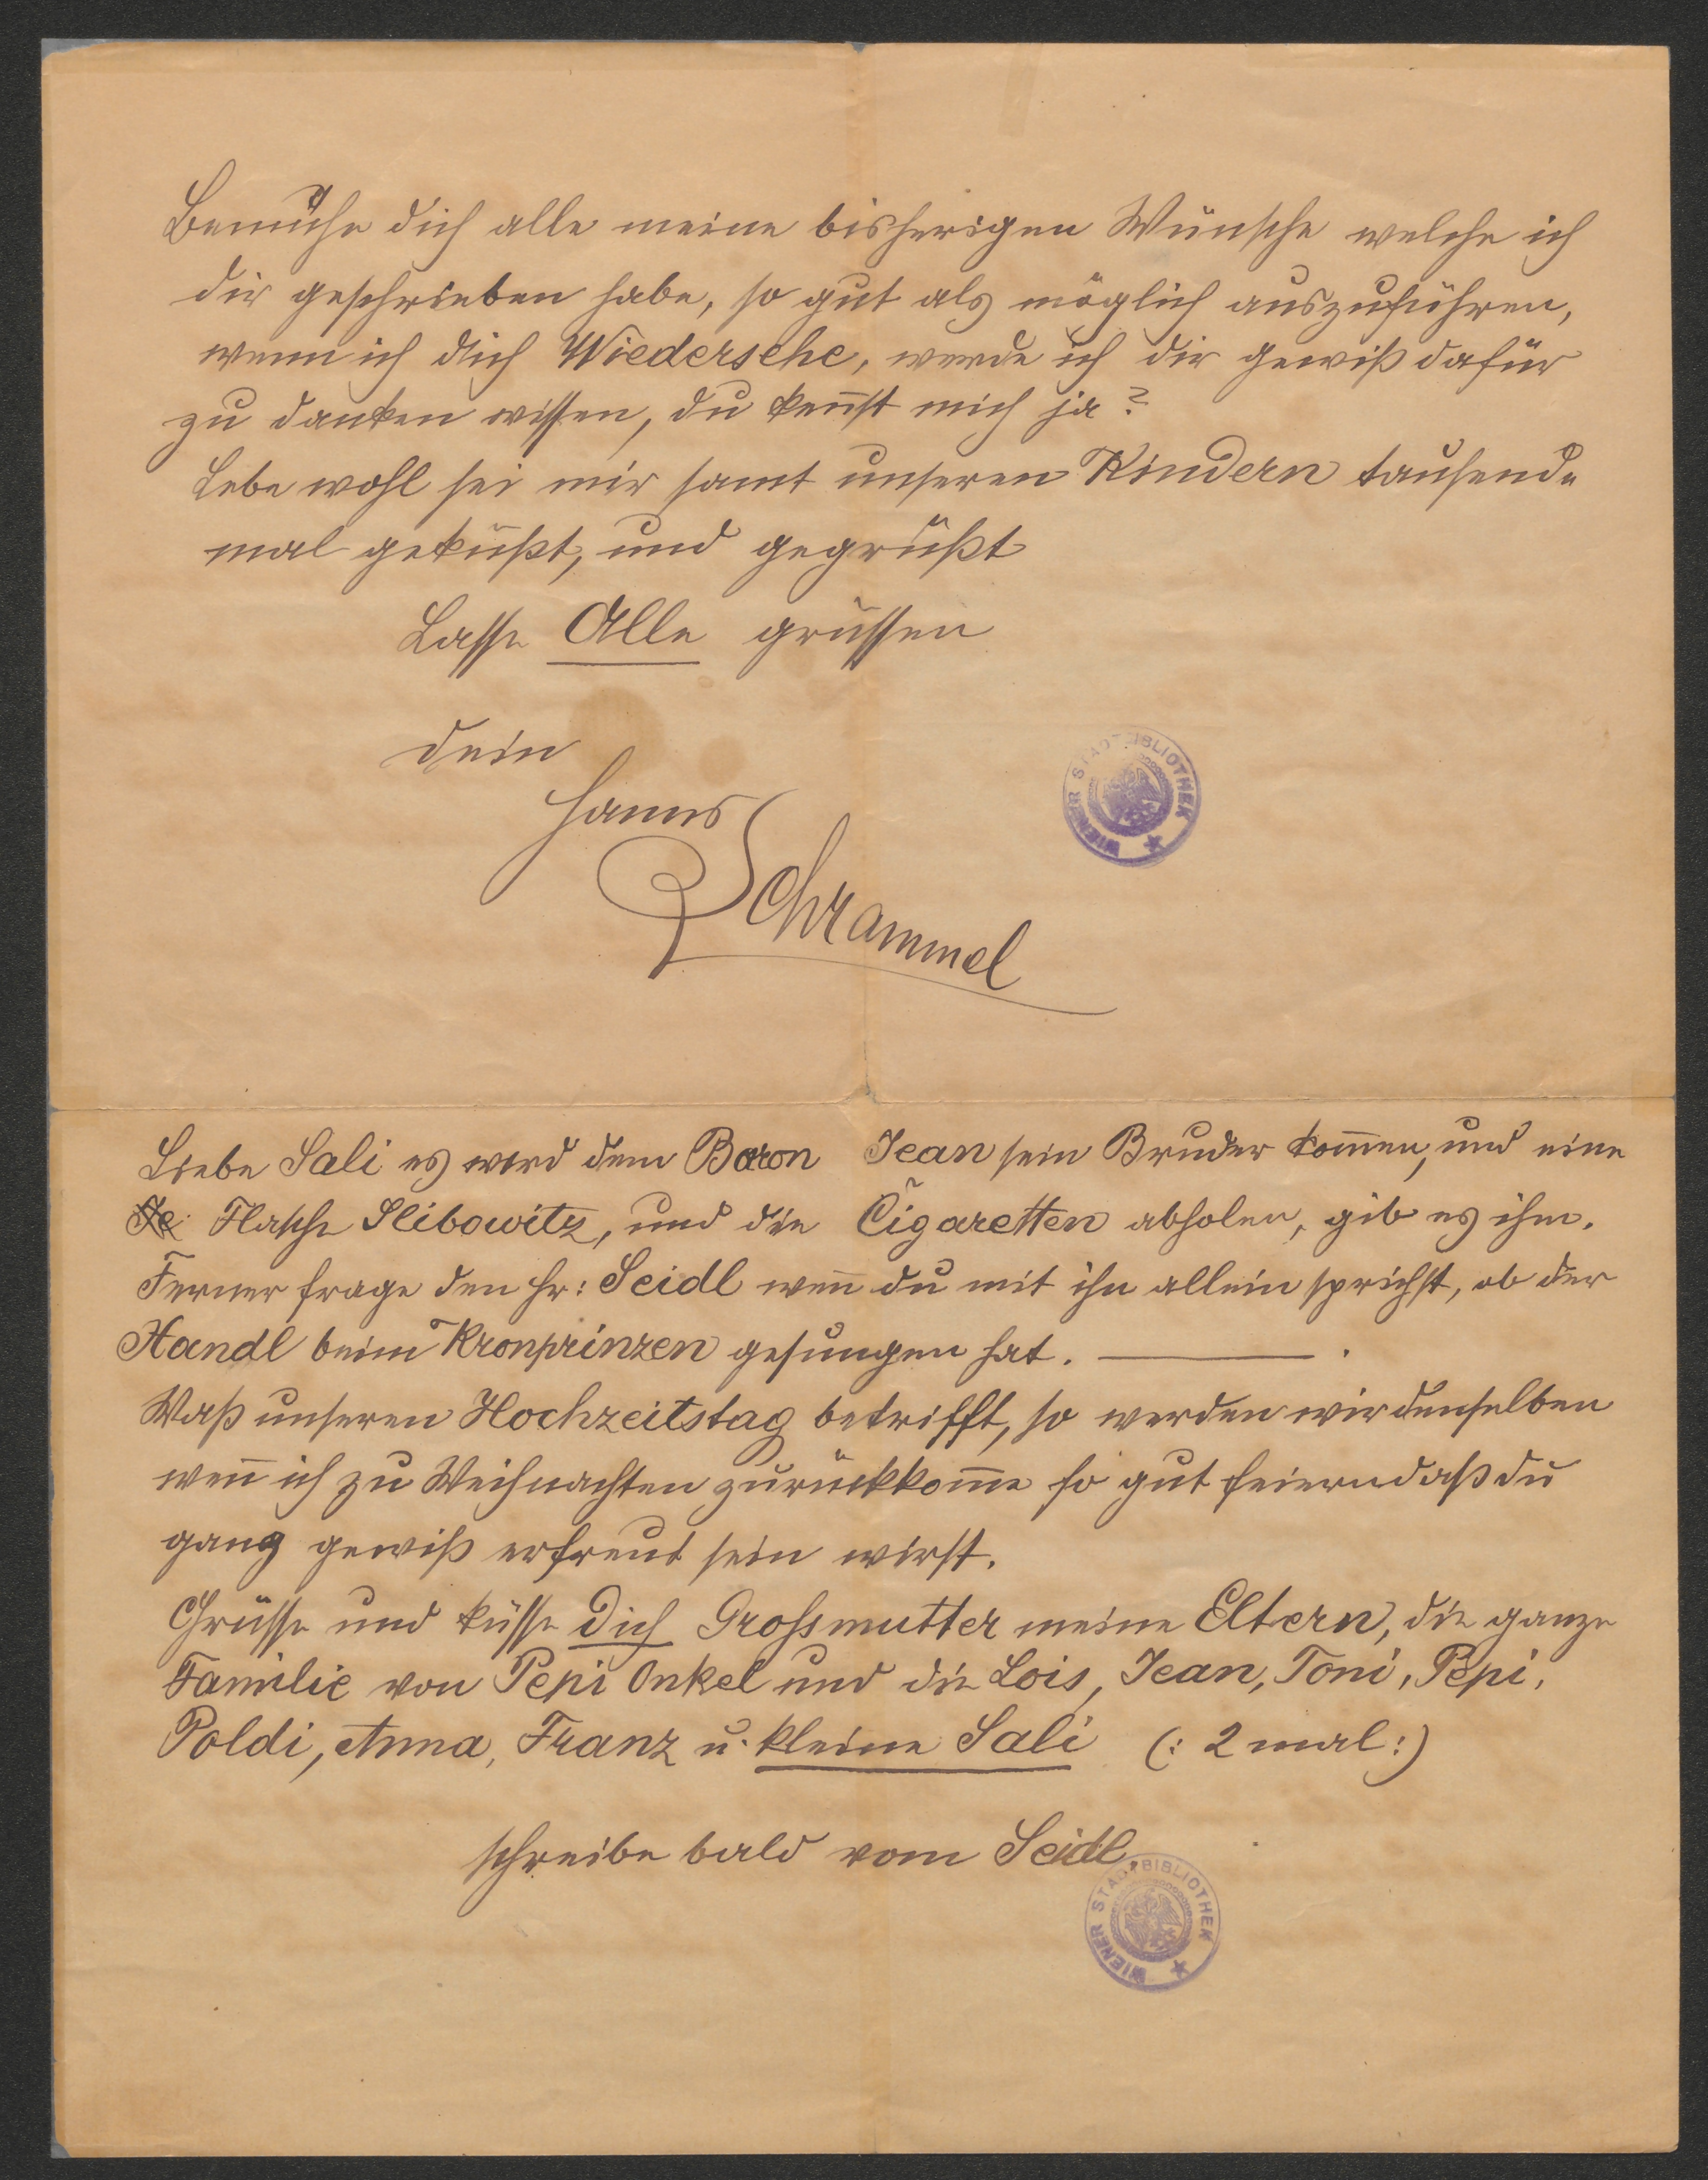 Bemühe dich alle meine bisherigen Wünsche welche ich
dir geschrieben habe, so gut als möglich auszuführen,
wenn ich dich Wiedersehe, werde ich dir gewiß dafür
zu danken wissen, du keñst mich ja?
Lebe wohl sei mir samt unseren Kindern tausende
mal geküßt, und gegrüßt
Lasse Alle grüssen
dein
Hanns
Schrammel
WIENER STADTBIBLIOTHEK
Liebe Sali es wird dem Baron Jean sein Bruder kom̄en, und eine
Je Flasche Slibowitz, und die Cigaretten abholen, gib es ihm.
Ferner frage den Hr: Seidl weñ du mit ihn allein sprichst, ob der
Handl beim Kronprinzen gesungen hat. ———.
Waß unseren Hochzeitstag betrifft, so werden wir denselben
weñ ich zu Weihnachten zurückkom̄e so gut feiern daß du
ganz gewiß erfreut sein wirst.
Grüsse und küsse Dich Grossmutter meine Eltern, die ganze
Familie von Pepi Onkel und die Lois, Jean, Toni, Pepi,
Poldi, Anna, Franz u. kleine Sali (: 2 mal :)
schreibe bald vom Seidl.
WIENER STADTBIBLIOTHEK